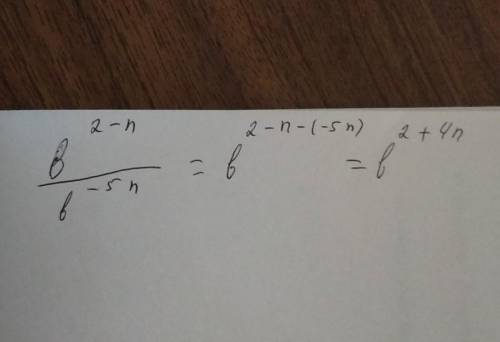 b^{2-n} / b^{-5n} = b^{2-n-(-5n)} = b^{2+4n}